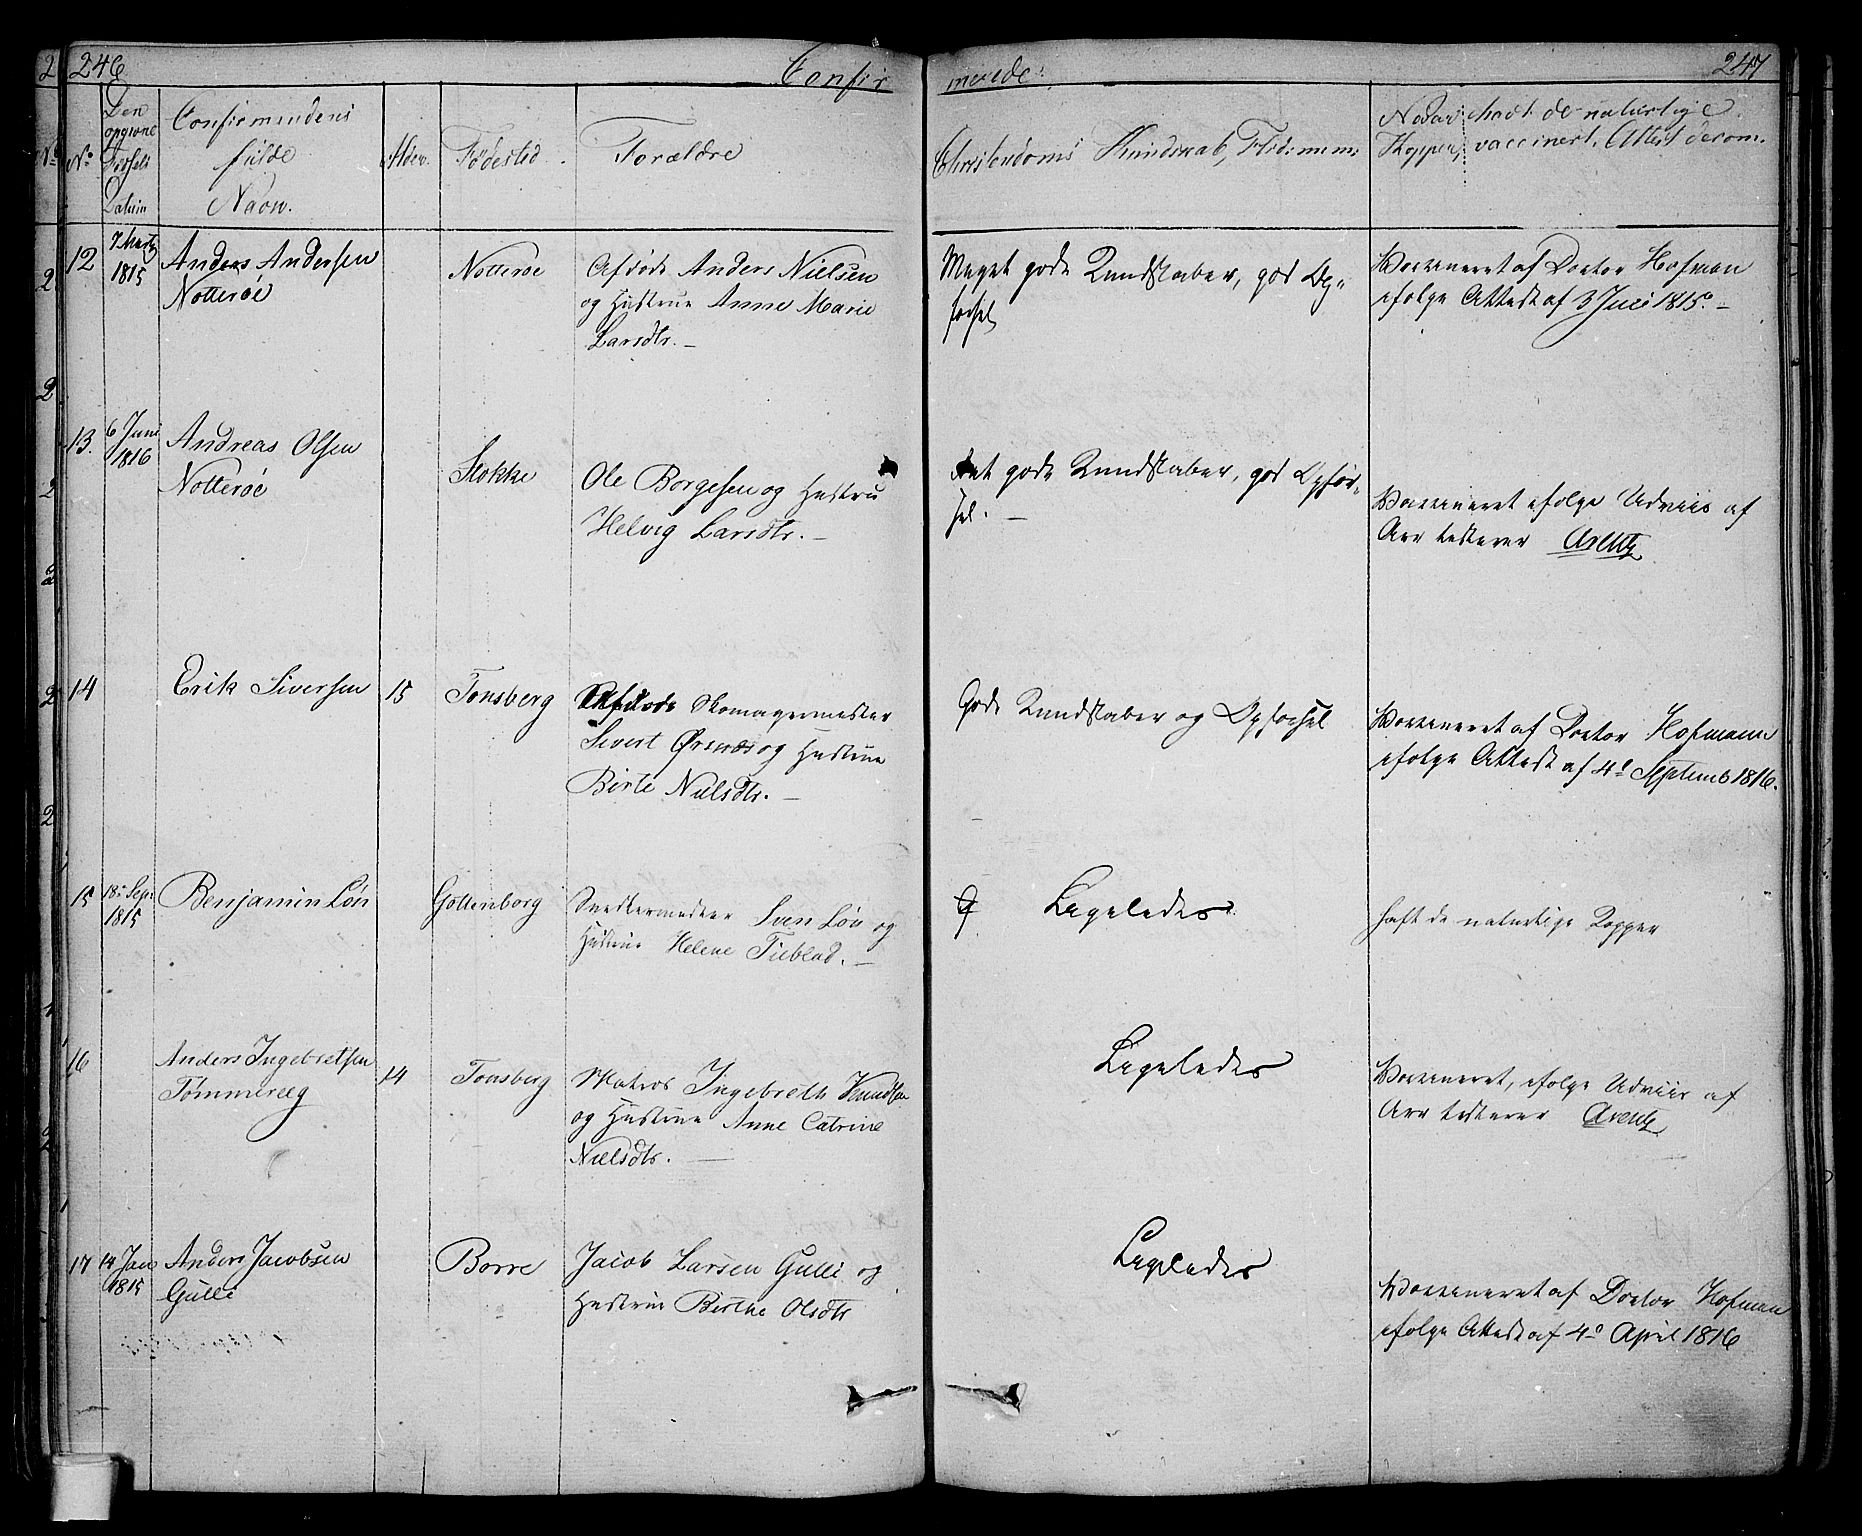 246
Confir
merede.
247
No
Den opgivne Fødsels Datum
Confirmandens fulde Navn.
Alder.
Fødested.
Forældre
Christendoms Kundskab, Flid
Naar havt de naturlige
Kopper, vaccinert. Attest derom.
12
7 Marts 1815
Anders Andersen
Notterøe
Notterøe
Afdøde Anders Nielsen
og Hustrue Anne Marie
Larsdtr. –
Meget gode Kundskaber, god Op-
førsel
Vaccineret af Doctor Hofman
ifølge Attest af 3 Juni 1815. –
13.
6 Juni 1816
Andreas Olsen
Notterøe
Stokke
Ole Borgesen og Hustru
Helvig Larsdtr. –
gode Kundskaber, god Opfør-
sel. –
Vaccineret ifølge Udviis af
testerer Arentz
14
Erik Siversen
15
Tonsberg
Afdøde Skomagermester
Sivert Ørsnes og Hustrue
Birte Nielsdtr. –
Gode Kundskaber og Opførsel
Vaccineret af Doctor Hofmann
ifølge Attest af 4de Septemb 1816.
15
18de Sep: 1815
Benjamin Løn
Gottenborg
Snedkermester Sven Løn og
Hustrue Helene Tieblad. –
Ligeledes
haft de naturlige Kopper
16
Anders Ingebretsen
Tømmeraeg
14
Tonsberg
Matros Ingebreth Knudsen
og Hustrue Anne Catrine
Nielsdtr. –
Ligeledes
Vaccineret, ifølge Udviis af
testerer Arentz
17
14 Jan 1815
Anders Jacobsen
Gulli
Borre
Jacob Larsen Gulli og
Hustrue Birthe Olsdtr
Ligeledes
Vaccineret af Doctor Hofman
ifølge Attest af 4de April 1816